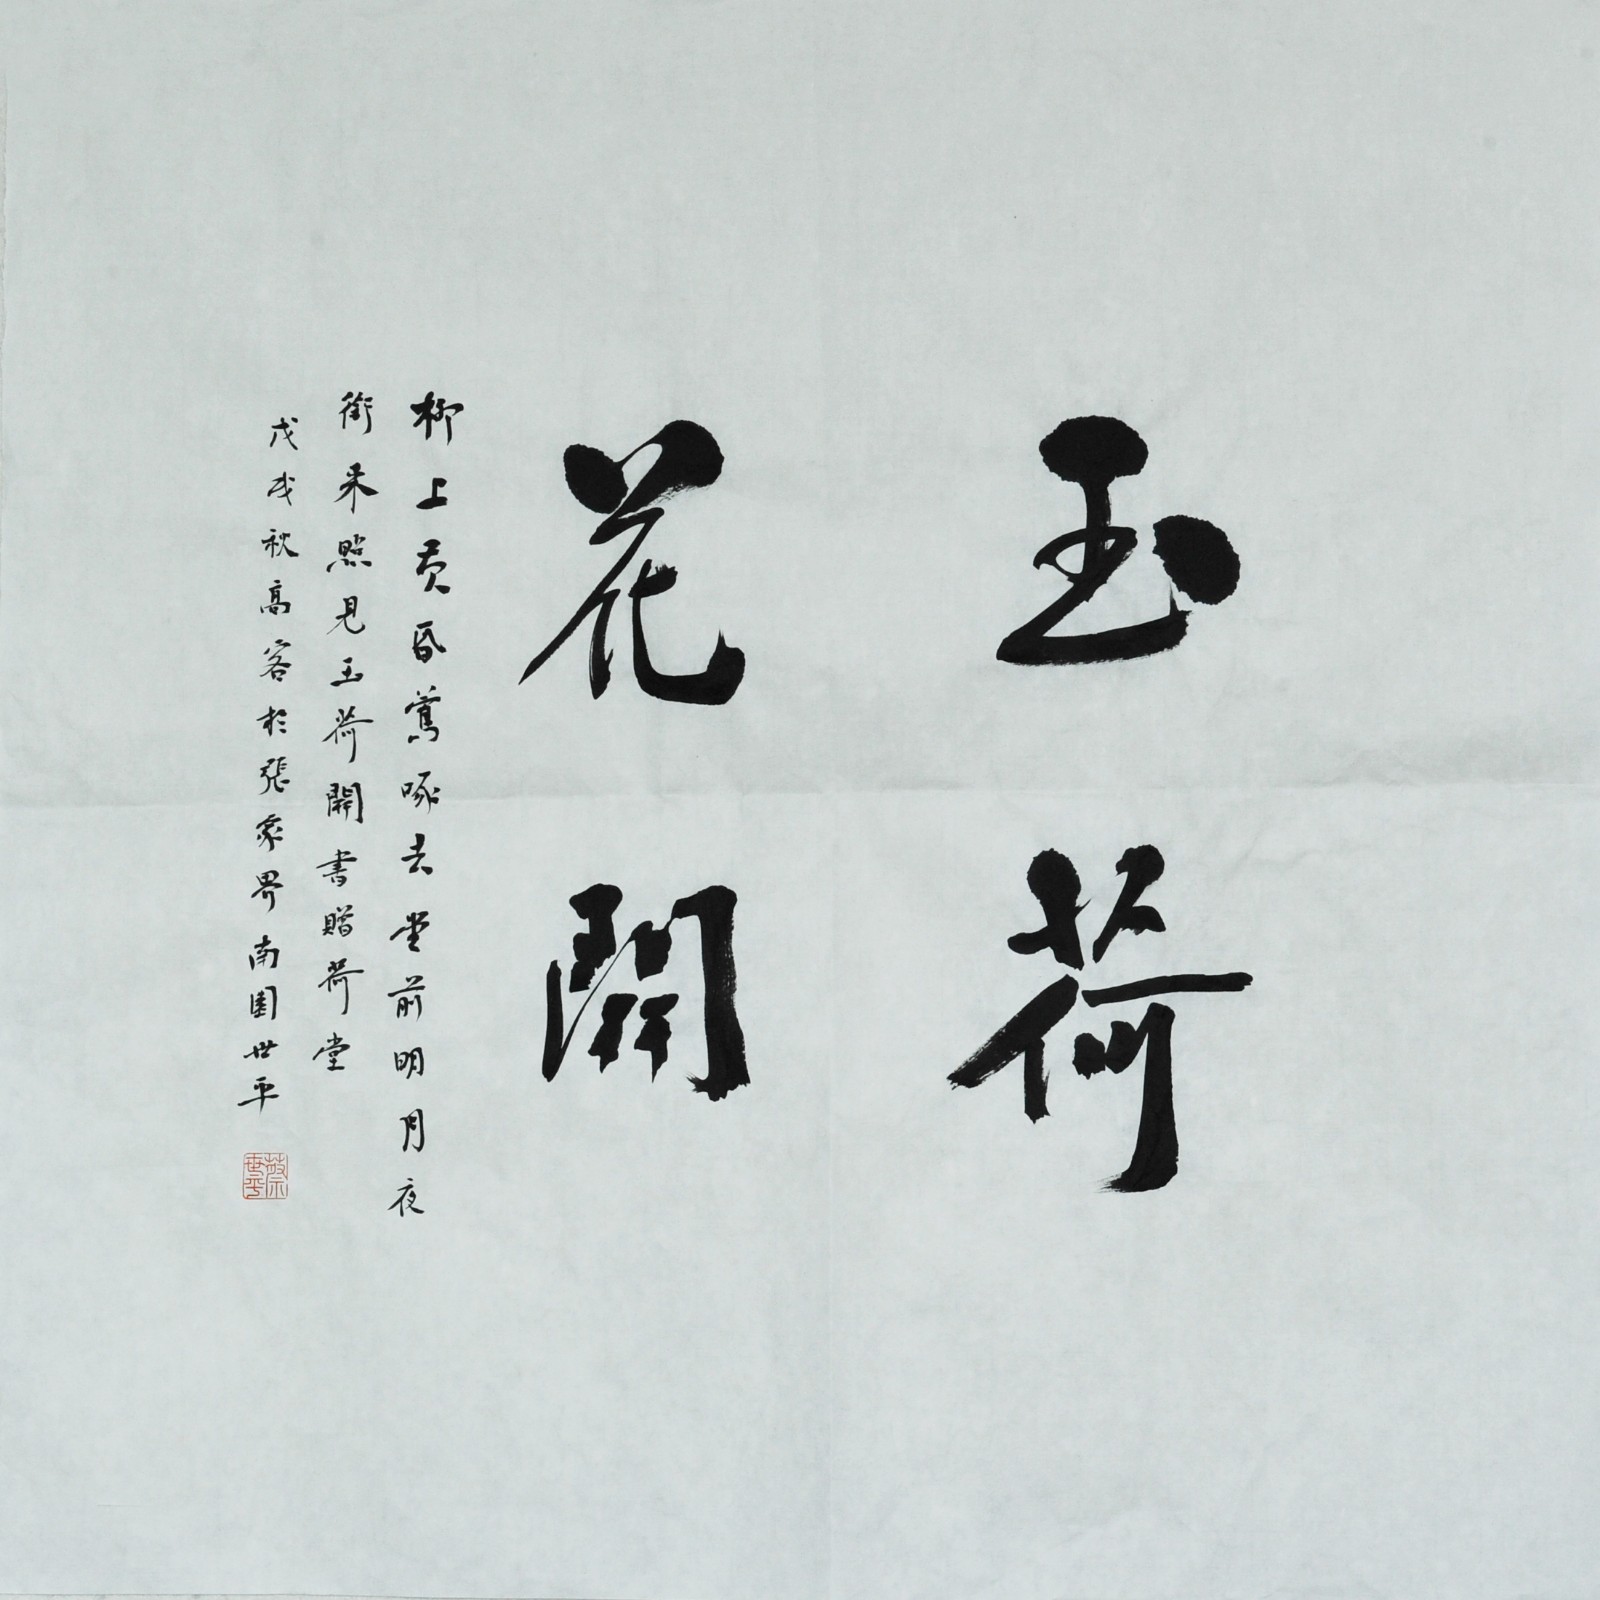 玉荷
花開
柳上黄昏鶯啄去堂前明月夜
銜来照見玉荷開書贈荷堂
戊戌秋高客於張家界南園世平
蔡世平